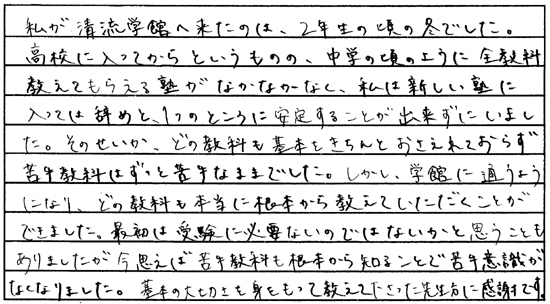 私が清流学館へ来たのは、2年生の頃の冬でした。
高校に入ってからというものの、中学の頃のように全教科
教えてもらえる塾がなかなかなく、私は新しい塾に
入っては辞めと、1つのところに安定することが出来ずにいまし
た。そのせいか、どの教科も基本をきちんとおさえれておらず
苦手教科はずっと苦手なままでした。しかし、学館に通うよう
になり、どの教科も本当に根本から教えていただくことが
できました。最初は受験に必要ないのではないかと思うことも
ありましたが今思えば苦手教科も根本から知ることで苦手意識が
なくなりました。基本の大切さを身をもって教えて下さった先生方に感謝です。